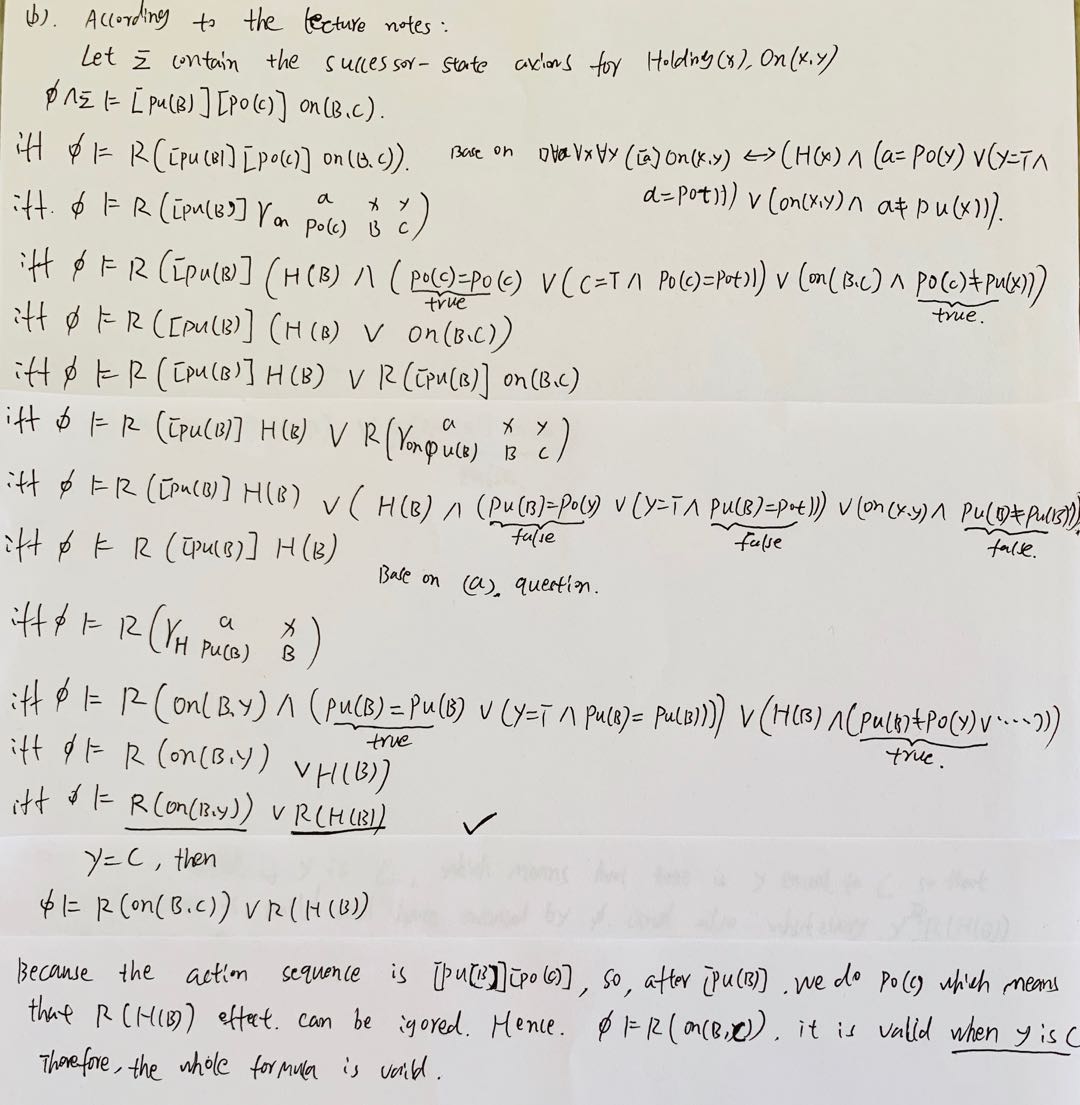 (b). According to the lecture notes:
Let Σ contain the successor-state axioms for Holding(x), On(x,y)
ϕ∧Σ ⊨ [pu(B)][po(c)] on(B,C).
iff ϕ ⊨ R([pu(B)][po(c)] on(B,C)). Base on □∀a∀x∀y ([a]On(x,y) ↔ (H(x) ∧ (a=po(y) ∨ (y=T∧
a=pot))) ∨ (on(x,y) ∧ a≠pu(x))).
iff. ϕ ⊨ R([pu(B)] γon a po(c) x B y C)
iff ϕ ⊨ R([pu(B)] (H(B) ∧ (po(c)=po(c) ∨ (C=T ∧ po(c)=pot))) ∨ (on(B,C) ∧ po(c)≠pu(x)))
true true.
iff ϕ ⊨ R([pu(B)] (H(B) ∨ on(B,C))
iff ϕ ⊨ R([pu(B)] H(B) ∨ R([pu(B)] on(B,C)
iff ϕ ⊨ R([pu(B)] H(B) ∨ R(γon a pu(B) x B y C)
iff ϕ ⊨ R([pu(B)] H(B) ∨ ( H(B) ∧ (pu(B)=po(y) ∨ (y=T∧ pu(B)=pot))) ∨ (on(x,y) ∧ pu(B)≠pu(B)))
false false false.
iff ϕ ⊨ R([pu(B)] H(B)
Base on (a). question.
iff ϕ ⊨ R(γH a pu(B) x B)
iff ϕ ⊨ R(on(B,y) ∧ (pu(B)=pu(B) ∨ (y=T ∧ pu(B)=pu(B)))) ∨ (H(B) ∧(pu(B)≠po(y)∨·····)))
true true.
iff ϕ ⊨ R(on(B,y) ∨H(B))
iff ϕ ⊨ R(on(B,y)) ∨ R(H(B)) ✓
y=C, then
ϕ ⊨ R(on(B,C)) ∨ R(H(B))
Because the action sequence is [pu(B)][po(c)], so, after [pu(B)], we do po(c) which means
that R(H(B)) effect. can be igored. Hence. ϕ ⊨ R(on(B,C)). it is valid when y is C
Therefore, the whole formula is vaild.